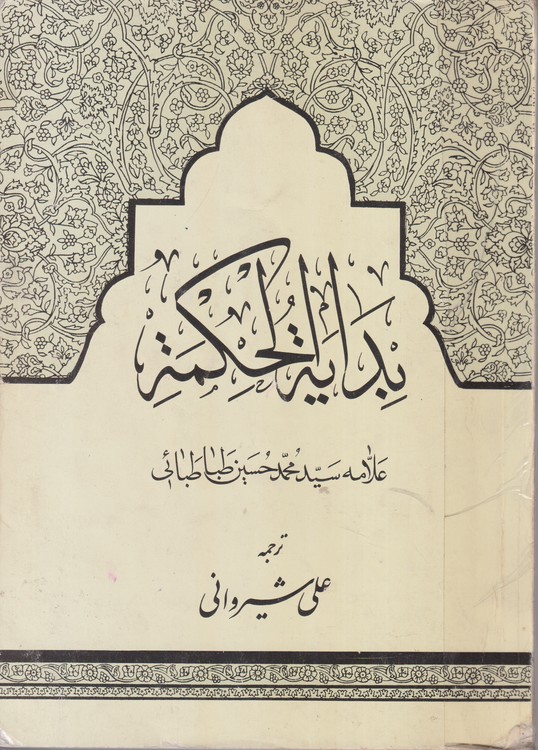 بِدَایَةُ الْحِکْمَةِ
علّامه سیّد محمّد حسین طباطبائی
ترجمه
علی شیروانی